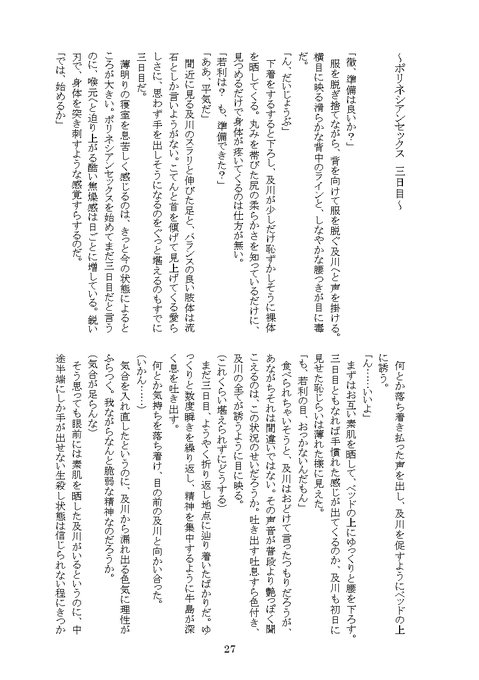 ～ポリネシアンセックス　三日目～
「徹、準備は良いか？」
　服を脱ぎ捨てながら、背を向けて服を脱ぐ及川へと声を掛ける。
横目に映る滑らかな背中のラインと、しなやかな腰つきが目に毒
だ。
「ん、だいじょうぶ」
　下着をするすると下ろし、及川が少しだけ恥ずかしそうに裸体
を晒してくる。丸みを帯びた尻の柔らかさを知っているだけに、
見つめるだけで身体が疼いてくるのは仕方が無い。
「若利は？　も、準備できた？」
「ああ、平気だ」
　間近に見る及川のスラリと伸びた足と、バランスの良い肢体は流
石としか言いようがない。こてんと首を傾げて見上げてくる愛ら
しさに、思わず手を出しそうになるのをぐっと堪えるのもすでに
三日目だ。
　薄明りの寝室を息苦しく感じるのは、きっと今の状態によると
ころが大きい。ポリネシアンセックスを始めてまだ三日目だと言う
のに、喉元へと迫り上がる酷い焦燥感は日ごとに増している。鋭い
刃で、身体を突き刺すような感覚すらするのだ。
「では、始めるか」
　何とか落ち着き払った声を出し、及川を促すようにベッドの上
に誘う。
「ん……いいよ」
　まずはお互い素肌を晒して、ベッドの上にゆっくりと腰を下ろす。
三日目ともなれば手慣れた感じが出てくるのか、及川も初日に
見せた恥じらいは薄れた様に見えた。
「も、若利の目、おっかないんだもん」
　食べられちゃいそうと、及川はおどけて言ったつもりだろうが、
あながちそれは間違いではない。その声音が普段より艶っぽく聞
こえるのは、この状況のせいだろうか。吐き出す吐息すら色付き、
及川の全てが誘うように目に映る。
（これくらい堪えられずにどうする）
　まだ三日目、ようやく折り返し地点に辿り着いたばかりだ。ゆ
っくりと数度瞬きを繰り返し、精神を集中するように牛島が深
く息を吐き出す。
　何とか気持ちを落ち着け、目の前の及川と向かい合った。
（いかん……）
　気合を入れ直したというのに、及川から漏れ出る色気に理性が
ふらつく。我ながらなんと脆弱な精神なのだろうか。
（気合が足らんな）
　そう思っても眼前には素肌を晒した及川がいるというのに、中
途半端にしか手が出せない生殺し状態は信じられない程にきつか
27